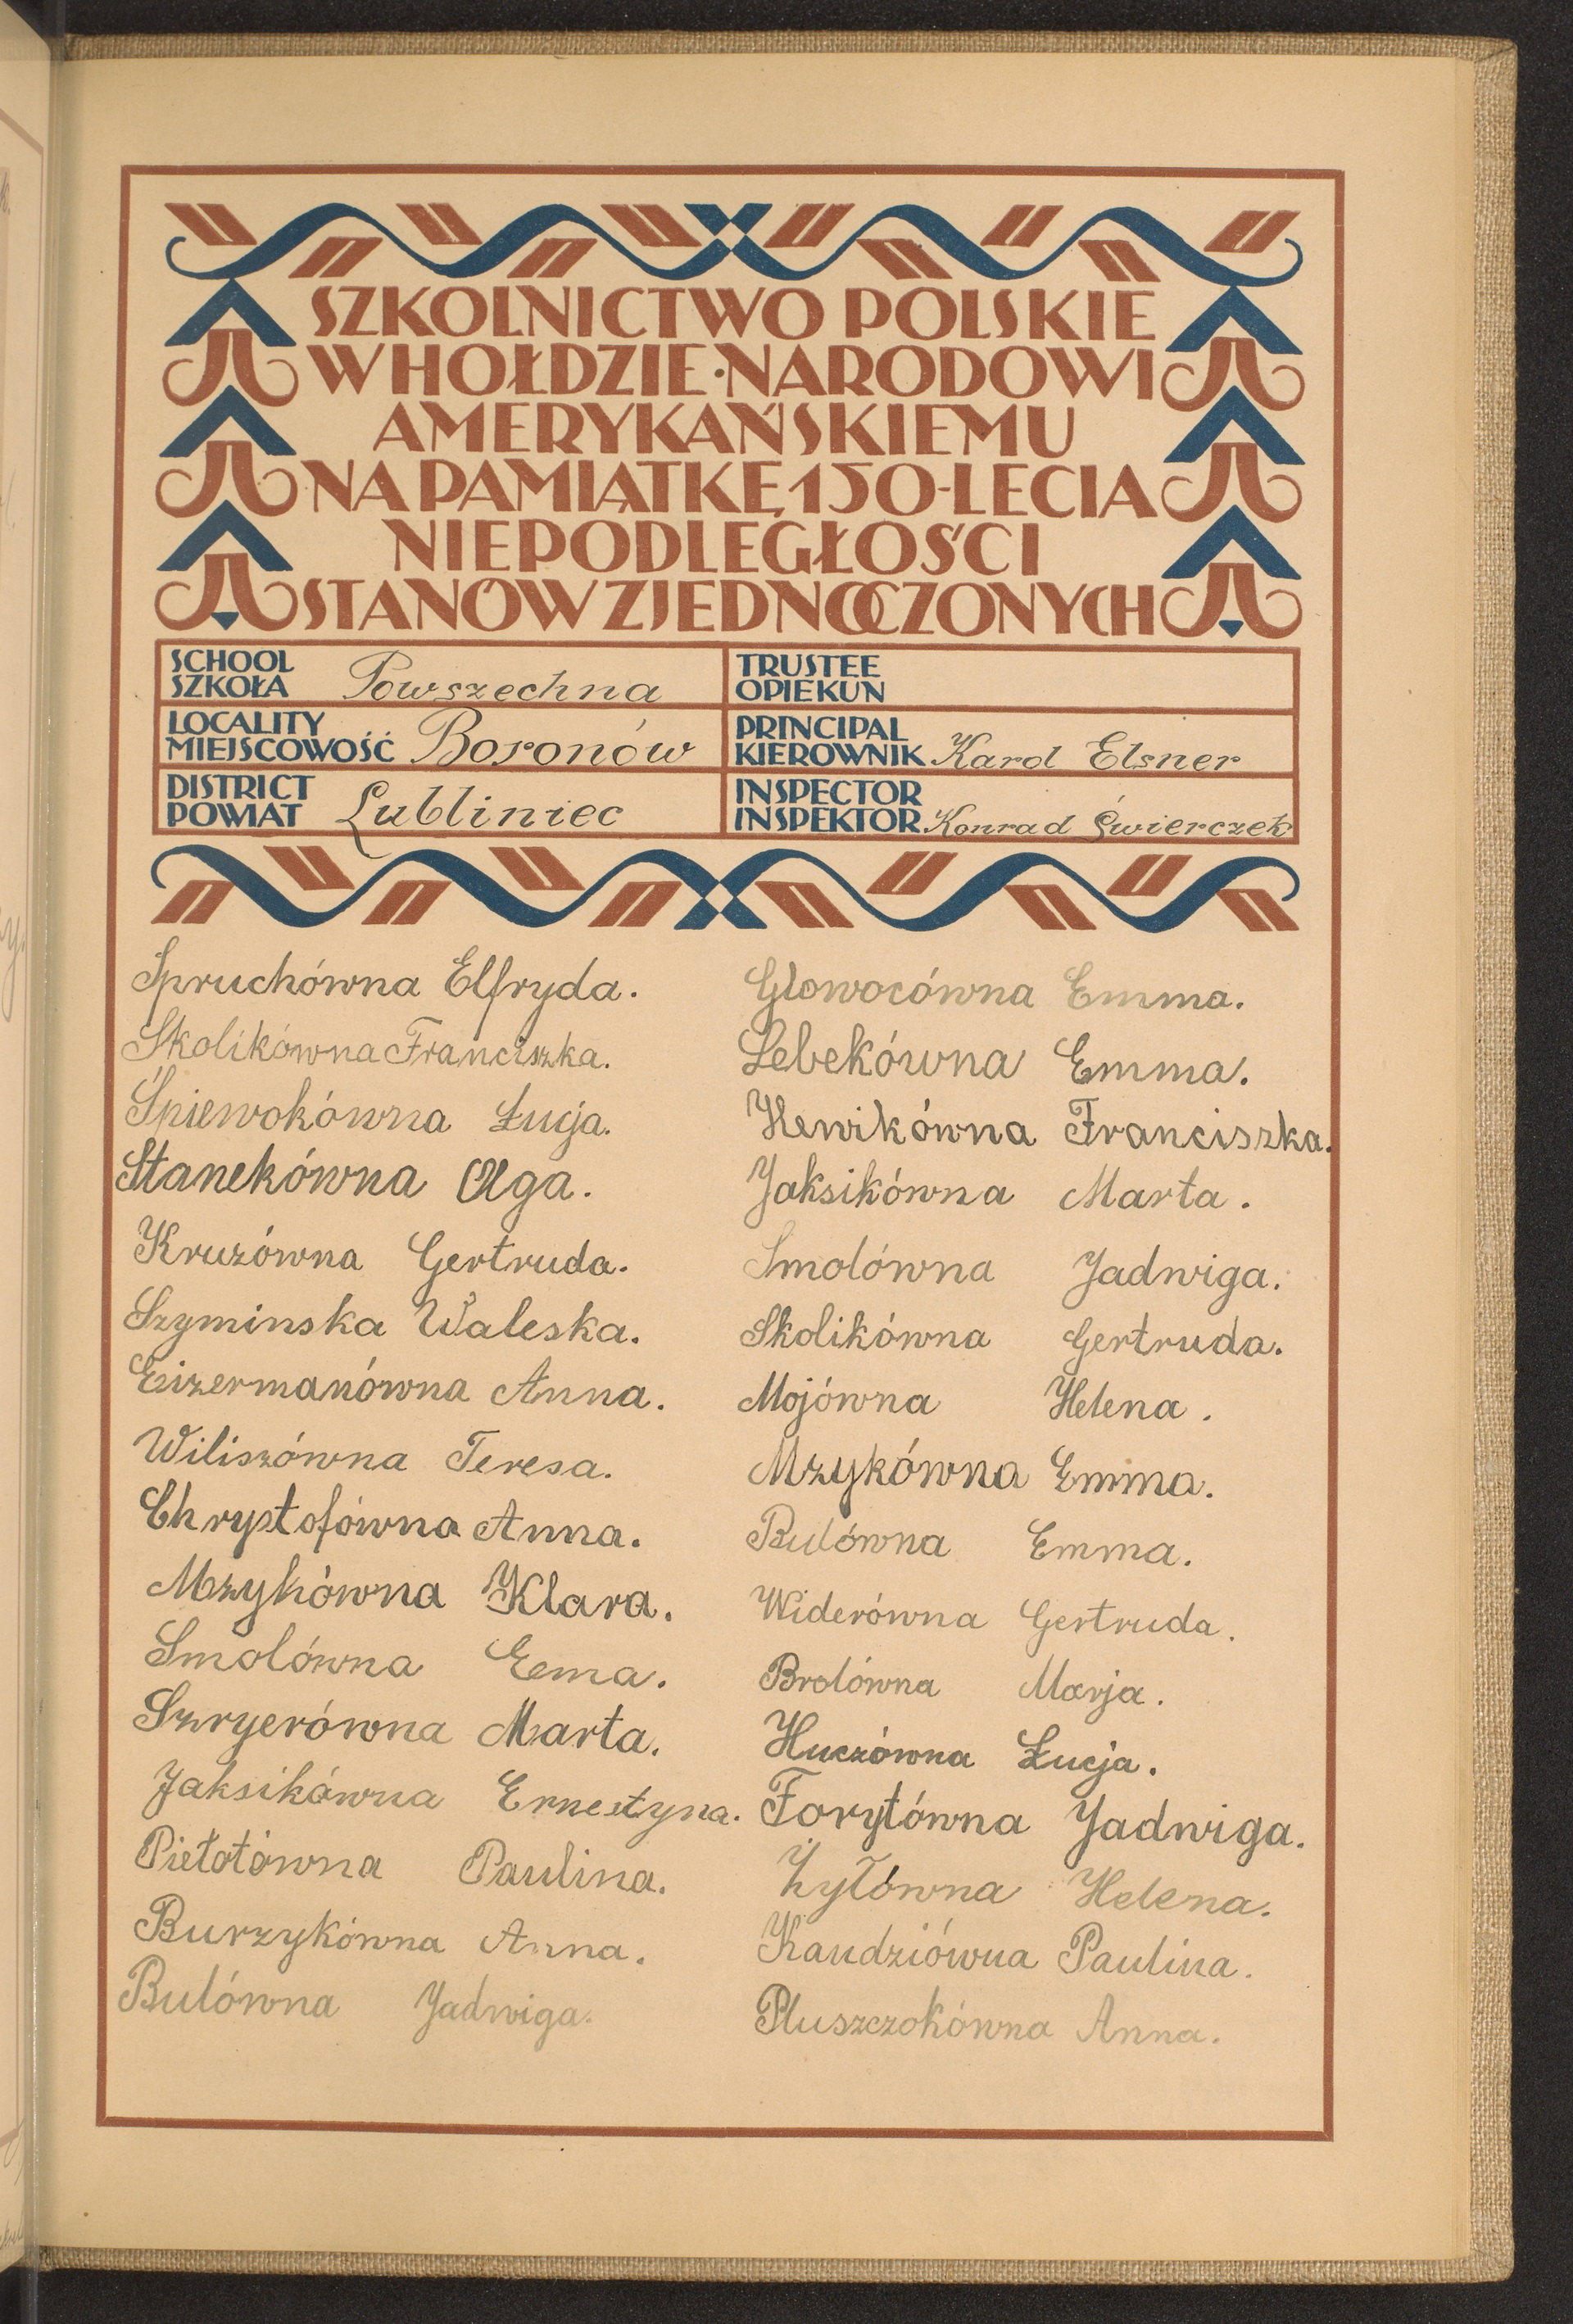 SZKOLNICTWO POLSKIE
W HOŁDZIE·NARODOWI
AMERYKAŃSKIEMU
NA PAMIĄTKĘ 150-LECIA
NIEPODLEGŁOŚCI
STANÓW ZJEDNOCZONYCH
SCHOOL
SZKOŁA Powszechna
TRUSTEE
OPIEKUN
LOCALITY
MIEJSCOWOŚĆ Boronów
PRINCIPAL
KIEROWNIK Karol Elsner
DISTRICT
POWIAT Lubliniec
INSPECTOR
INSPEKTOR Konrad Świerczek
Spruchówna Elfryda.
Skolikówna Franciszka.
Śpiewokówna Łucja.
Stanekówna Olga.
Kruzówna Gertruda.
Szyminska Waleska.
Eizermanówna Anna.
Wiliszówna Teresa.
Chrystofówna Anna.
Mzykówna Klara.
Smolówna Ema.
Szryerówna Marta.
Jaksikówna Ernestyna.
Pietotówna Paulina.
Burzykówna Anna.
Bulówna Jadwiga.
Glowocówna Emma.
Lebekówna Emma.
Hewikówna Franciszka.
Jaksikówna Marta.
Smolówna Jadwiga.
Skolikówna Gertruda.
Mojówna Helena.
Mzykówna Emma.
Bulówna Emma.
Widerówna Gertruda.
Brolówna Marja.
Huczówna Łucja.
Forytówna Jadwiga.
Żyłówna Helena.
Kandziówna Paulina.
Pluszczokówna Anna.